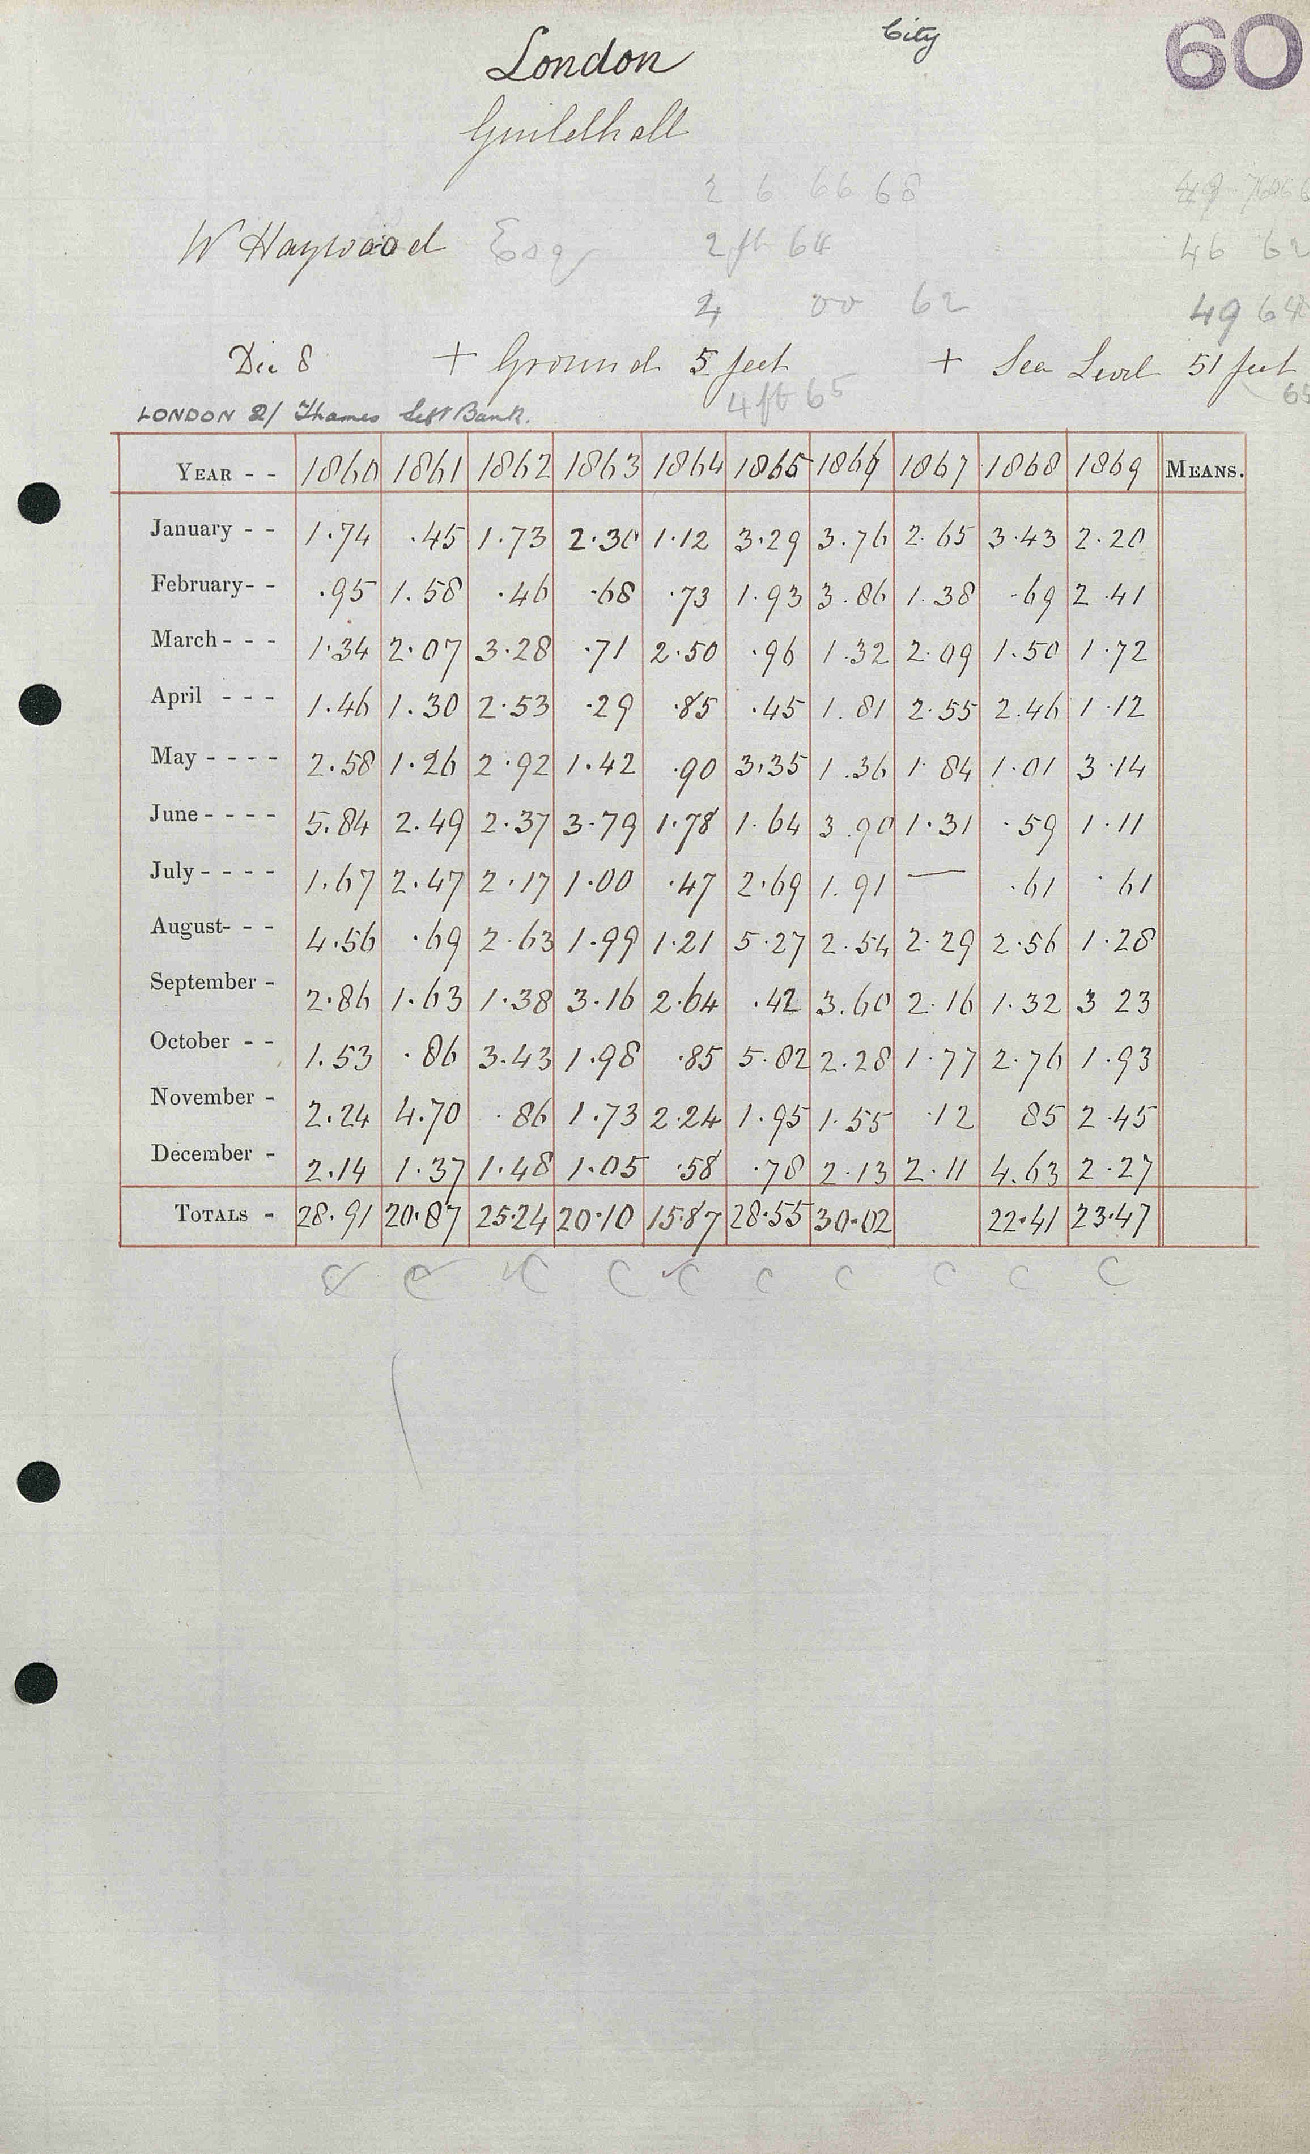 City
60
London
Guildhall
2 6 66 68
W Haywood Esq 2 ft 64 46 62
4 00 62 49 64
Die 8 + Ground 5 feet + Sea Level 51 feet
4 ft 65 65
LONDON 2/ Thames Left Bank.
YEAR - - 1860 1861 1862 1863 1864 1865 1866 1867 1868 1869 MEANS.
January - - 1.74 .45 1.73 2.30 1.12 3.29 3.76 2.65 3.43 2.20
February - - .95 1.58 .46 .68 .73 1.93 3.86 1.38 .69 2.41
March - - - 1.34 2.07 3.28 .71 2.50 .96 1.32 2.09 1.50 1.72
April - - - 1.46 1.30 2.53 .29 .85 .45 1.81 2.55 2.46 1.12
May - - - - 2.58 1.26 2.92 1.42 .90 3.35 1.36 1.84 1.01 3.14
June - - - - 5.84 2.49 2.37 3.79 1.78 1.64 3.90 1.31 .59 1.11
July - - - - 1.67 2.47 2.17 1.00 .47 2.69 1.91 — .61 .61
August - - - 4.56 .69 2.63 1.99 1.21 5.27 2.54 2.29 2.56 1.28
September - 2.86 1.63 1.38 3.16 2.64 .42 3.60 2.16 1.32 3 23
October - - 1.53 .86 3.43 1.98 .85 5.82 2.28 1.77 2.76 1.93
November - 2.24 4.70 .86 1.73 2.24 1.95 1.55 .12 85 2.45
December - 2.14 1.37 1.48 1.05 .58 .78 2.13 2.11 4.63 2.27
TOTALS - 28.91 20.87 25.24 20.10 15.87 28.55 30.02 22.41 23.47
C C C C C C C C C C